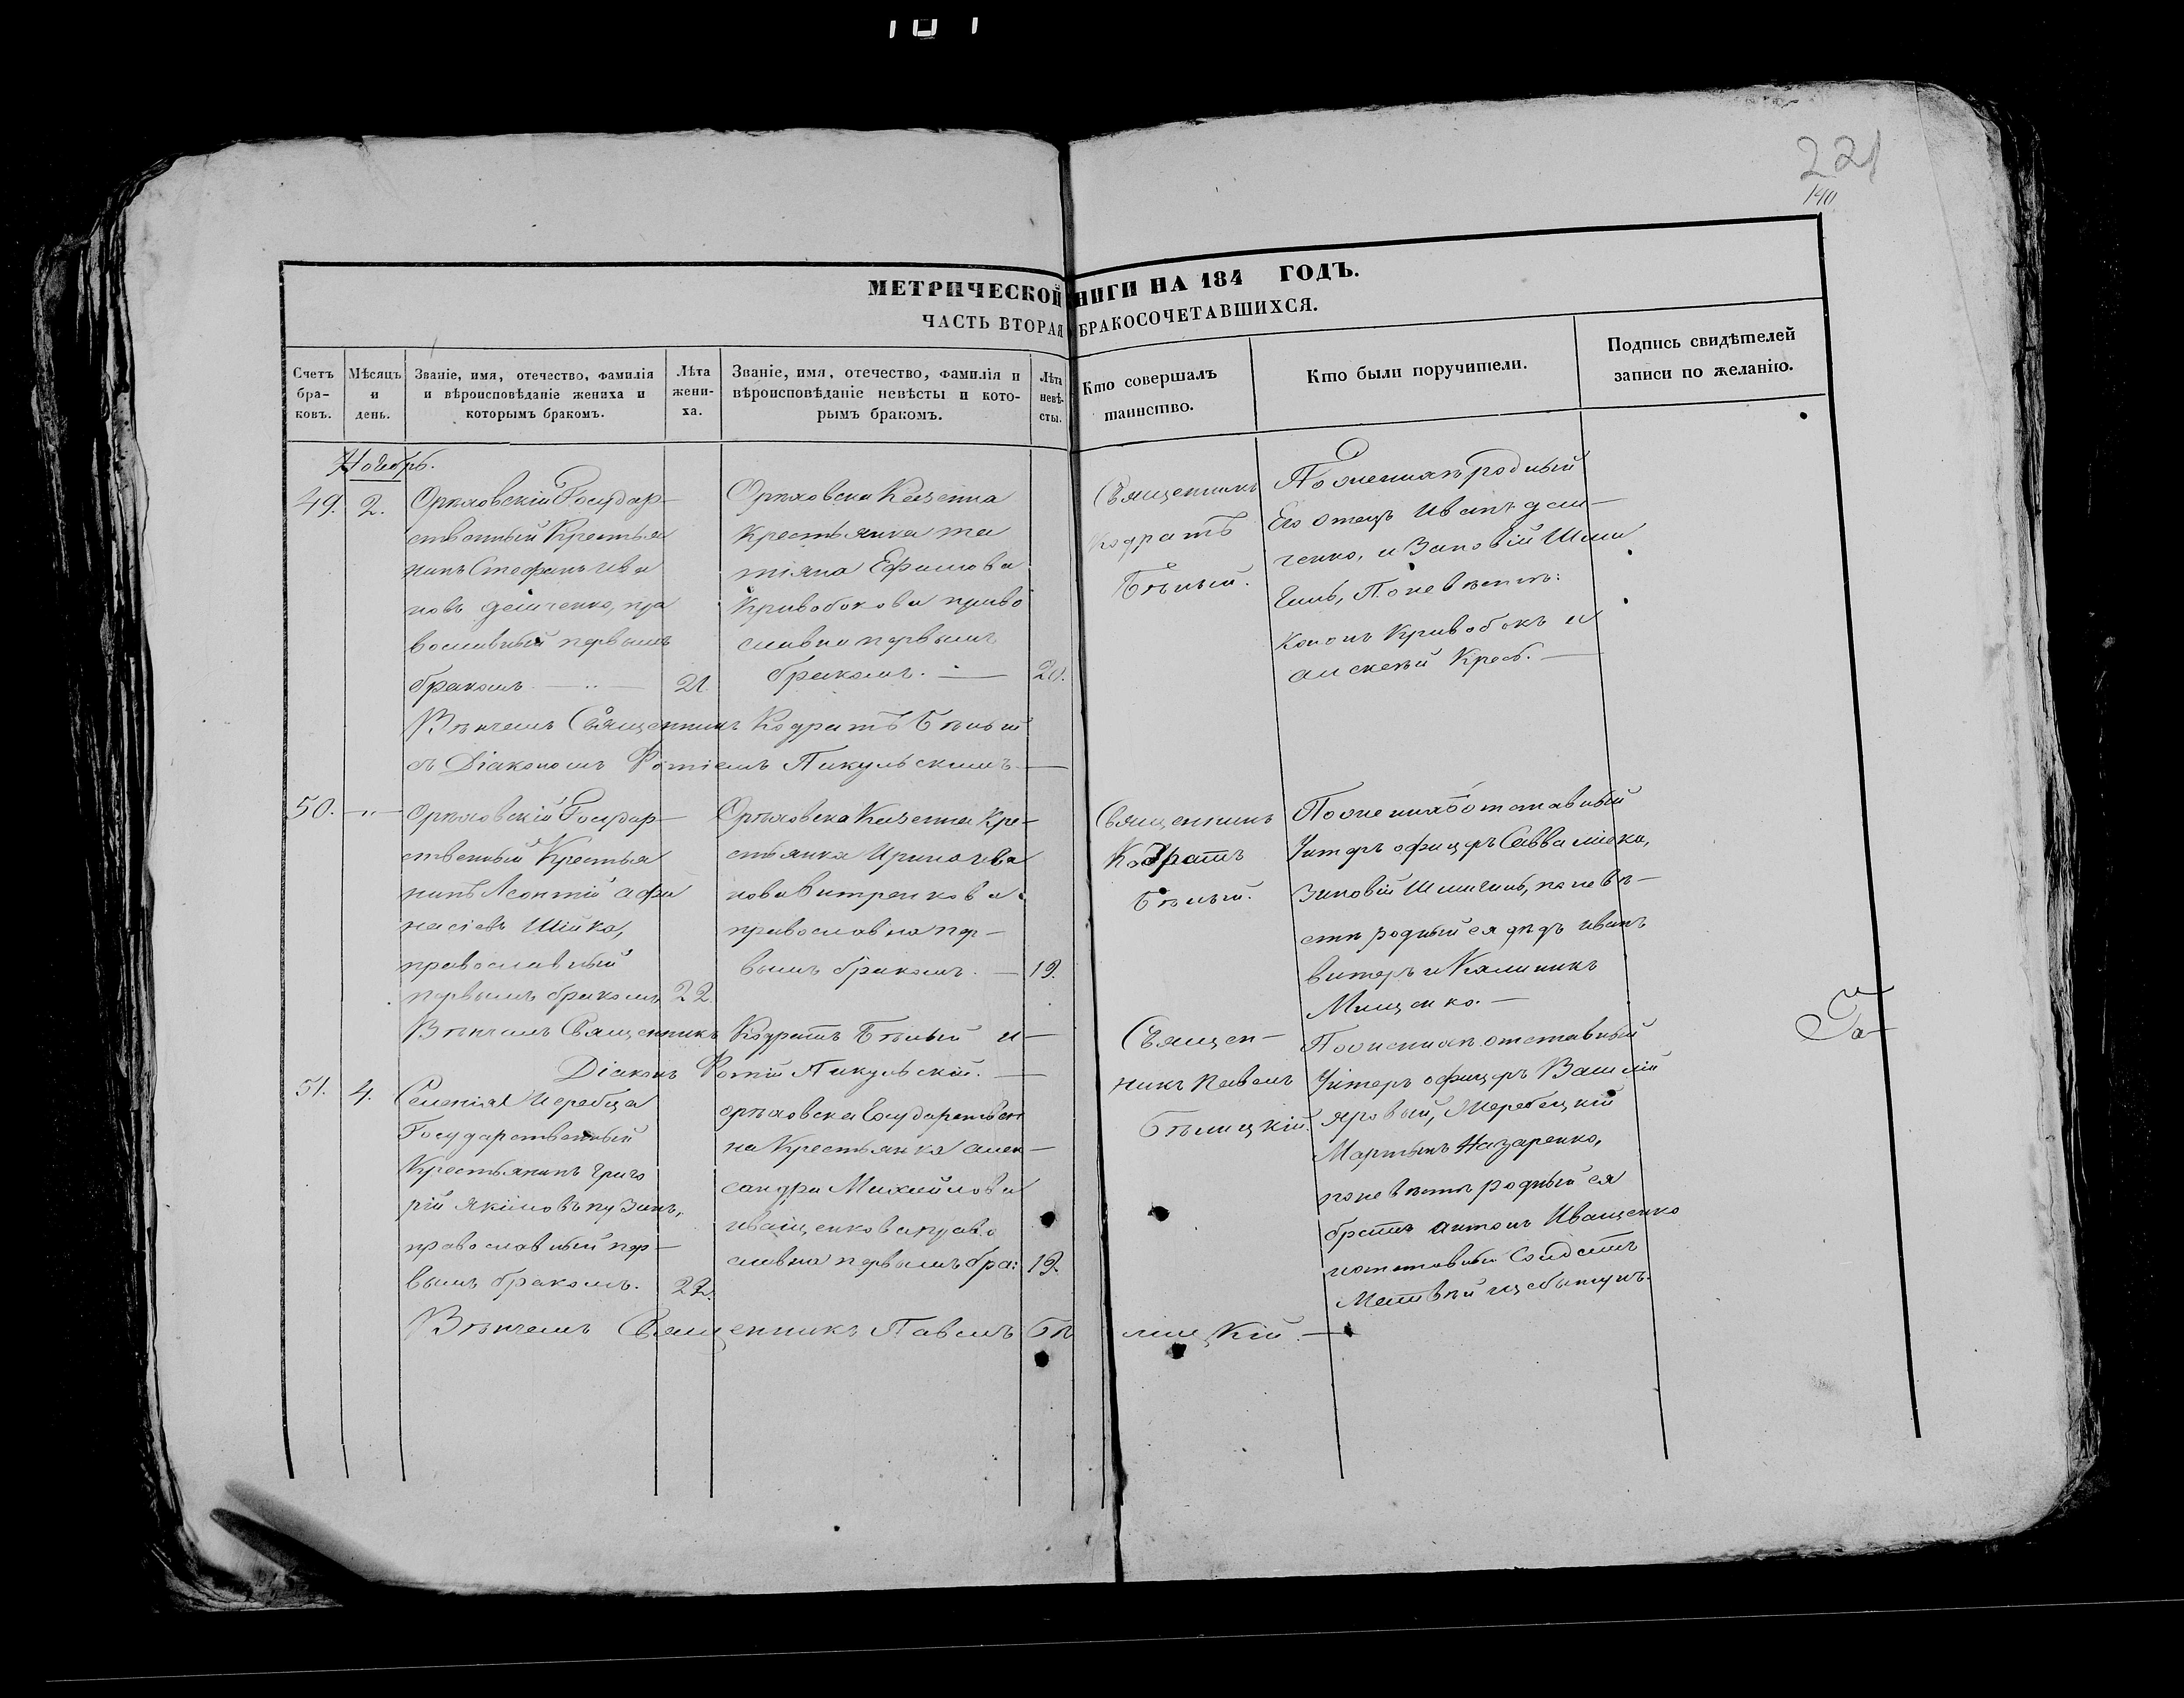 221
140
МЕТРИЧЕСКОЙ НИГИ НА 184 ГОДЪ.
ЧАСТЬ ВТОРАЯ БРАКОСОЧЕТАВШИХСЯ.
Счетъ бра-
ковъ.
Мѣсяцъ
и
день.
Званіе, имя, отечество, фамилія
и вѣроисповѣданіе жениха и
которымъ бракомъ.
Лѣта
жени-
ха.
Званіе, имя, отечество, фамилія и
вѣроисповѣданіе невѣсты и кото-
рымъ бракомъ.
Лѣта
невѣ-
сты.
Кто совершалъ
таинство.
Кто были поручители.
Подпись свидѣтелей
записи по желанію.
Ноябрь.
49. 2.
Орѣховскій Государ-
ственный Крестья
нинъ Стефанъ Ива
новъ пра
вославный первымъ
бракомъ 21.
Орѣховска Казенна
Крестьянка та
тіяна Ефимова
Кривобокова право
славна первымъ
бракомъ. 20.
Священникъ
Кодратъ
Бѣлый.
По женихѣ родный
Его отецъ Иванъ
и Зиновій
По невѣсте:
Кононъ Кривобокъ и
Вѣнчалъ Священникъ Кодратъ Бѣлый
съ Діакономъ Фотіемъ Пикульскимъ.
50.
Орѣховскій Государ-
ственный Крестья
нинъ Леонтій Афа
насіевъ Шійка,
православный
первымъ бракомъ 22.
Орѣховска Казенна Кре-
стьянка Ирина Ива
нова Витренкова
православна пер-
вымъ бракомъ. 19.
Священникъ
Кодратъ
Бѣлый.
По женихѣ отставный
Унтеръ офицеръ Савва
Зиновій по невѣ-
сте родный ея дядъ Иванъ
Витеръ и Калиникъ
Мищенко.
Вѣнчалъ Священникъ Кодратъ Бѣлый и
Діаконъ Фотій Пикульскій.
51. 4.
Селенія Жеребца
Государственный
Крестьянинъ Григо
рій Якимовъ Пузинъ,
православный пер-
вымъ бракомъ. 22.
Орѣховска Государствен
на Крестьянка Алек-
сандра Михайлова
Иващенкова право
славна первымъ бра: 19.
Священ-
никъ Павелъ
Бѣлицкій.
По женихѣ отставный
Унтеръ офицеръ Василій
Яровый, Жеребецкій
Мартынъ Назаренко,
по невѣстѣ родный ея
братъ Антонъ Иващенко
и отставный Солдатъ
Матвѣй
Вѣнчалъ Священникъ Павелъ Бѣ лицкій.